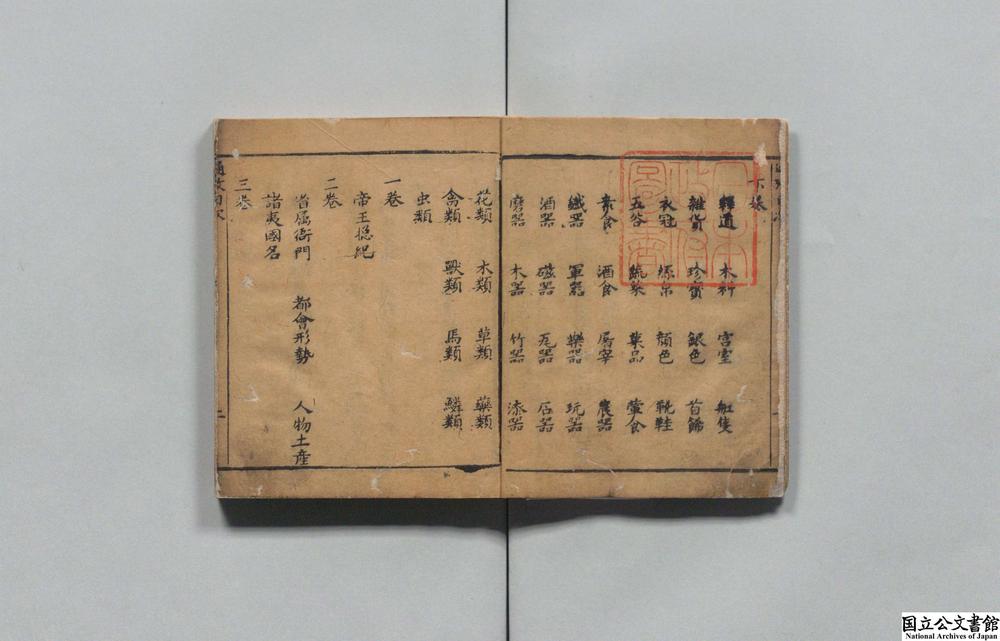 下卷
釋道 木料 宮室 舡隻
雜貨 珍寳 銀色 首餙
衣冠 綵帛 顔色 靴鞋
五谷 蔬菜 菓品 葷食
素食 酒食 屠宰 農器
鐵器 軍器 樂器 玩器
酒器 磁器 瓦器 石器
磨器 木器 竹器 漆器
花類 木類 草類 藥類
禽類 獸類 馬類 鱗類
虫類
一卷
帝王總紀
二卷
省属衙門 都會形勢 人物土産
諸夷國名
三卷
二
国立公文書館
National Archives of Japan